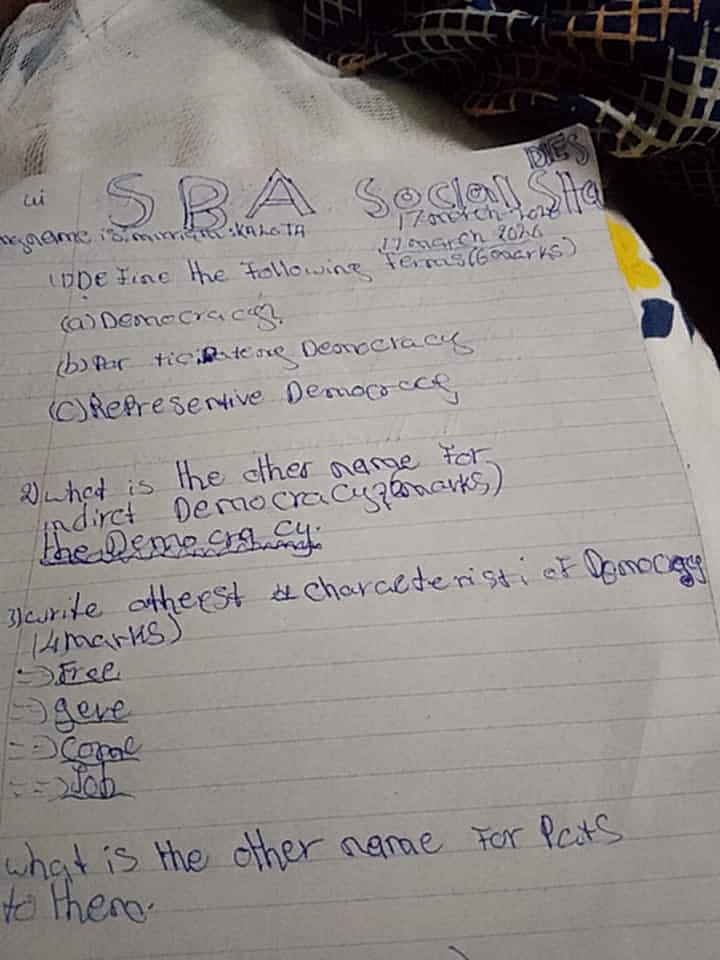 SBA Social
17 march 2026
name is mirriam KALOTA
17 march 2026
(1) DE Fine the Following Terms (6marks)
(a) Democracy
(b) Par ticipateng Democracy
(c) Representive Democracy
2) what is the other name For
indirct Democracy? (2marks)
the Democra cy.
3) write atheest 4 characteristi of Democracy
(4marks)
=> Free
=> geve
=> Come
=> Job
what is the other name For Parts
to them.